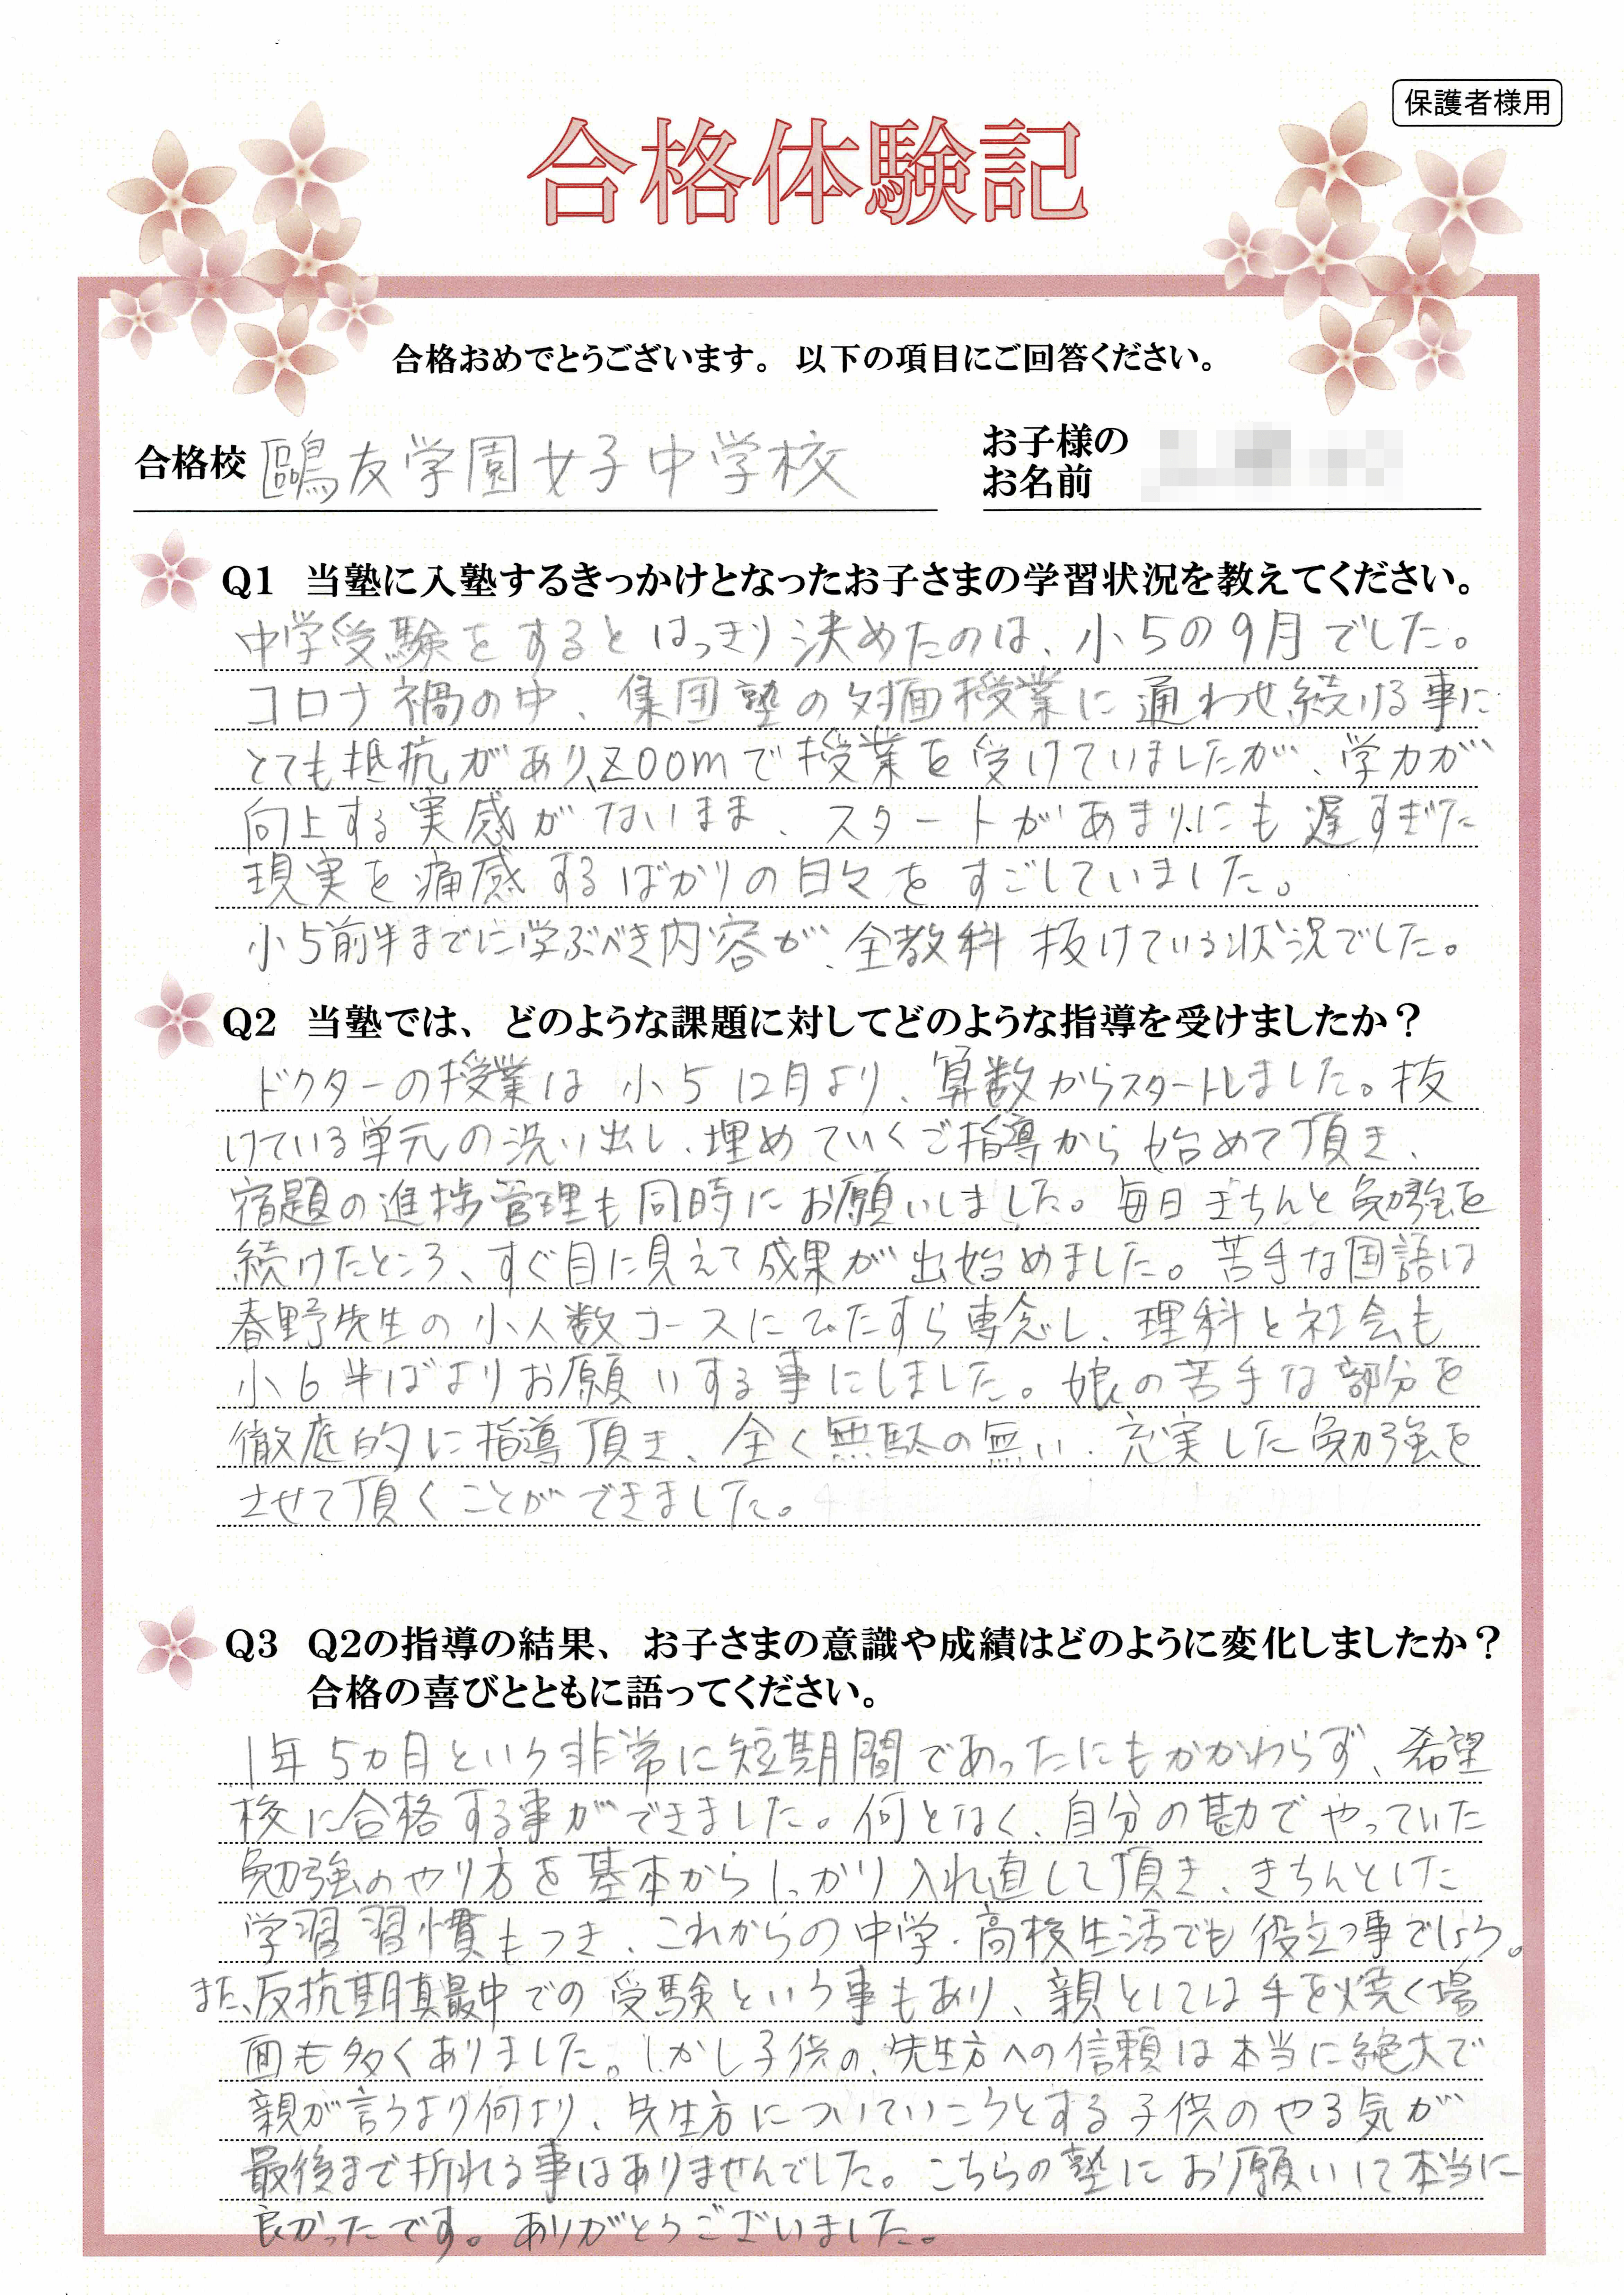 保護者様用
合格体験記
合格おめでとうございます。 以下の項目にご回答ください。
合格校 鷗友学園女子中学校
お子様の
お名前
Q1 当塾に入塾するきっかけとなったお子さまの学習状況を教えてください。
中学受験をするとはっきり決めたのは、小5の9月でした。
コロナ禍の中、集団塾の対面授業に通わせ続ける事に
とても抵抗があり、zoomで授業を受けていましたが、学力が
向上する実感がないまま、スタートがあまりにも遅すぎた
現実を痛感するばかりの日々をすごしていました。
小5前半までに学ぶべき内容が、全教科 抜けている状況でした。
Q2 当塾では、どのような課題に対してどのような指導を受けましたか？
ドクターの授業は 小5 12月より、算数からスタートしました。抜
けている単元の洗い出し、埋めていくご指導から始めて頂き、
宿題の進捗管理も同時にお願いしました。毎日きちんと勉強を
続けたところ、すぐ目に見えて成果が出始めました。苦手な国語は
春野先生の小人数コースにひたすら専念し、理科と社会も
小6半ばよりお願いする事にしました。娘の苦手な部分を
徹底的に指導頂き、全く無駄の無い、充実した勉強を
させて頂くことができました。
Q3 Q2の指導の結果、お子さまの意識や成績はどのように変化しましたか？
合格の喜びとともに語ってください。
1年5カ月という非常に短期間であったにもかかわらず、希望
校に合格する事ができました。何となく、自分の勘でやっていた
勉強のやり方を基本からしっかり入れ直して頂き、きちんとした
学習習慣もつき、これからの中学・高校生活でも役立つ事でしょう。
また、反抗期真最中での受験という事もあり、親としては手を焼く場
面も多くありました。しかし子供の、先生方への信頼は本当に絶大で
親が言うより何より、先生方についていこうとする子供のやる気が
最後まで折れる事はありませんでした。こちらの塾にお願いして本当に
良かったです。ありがとうございました。